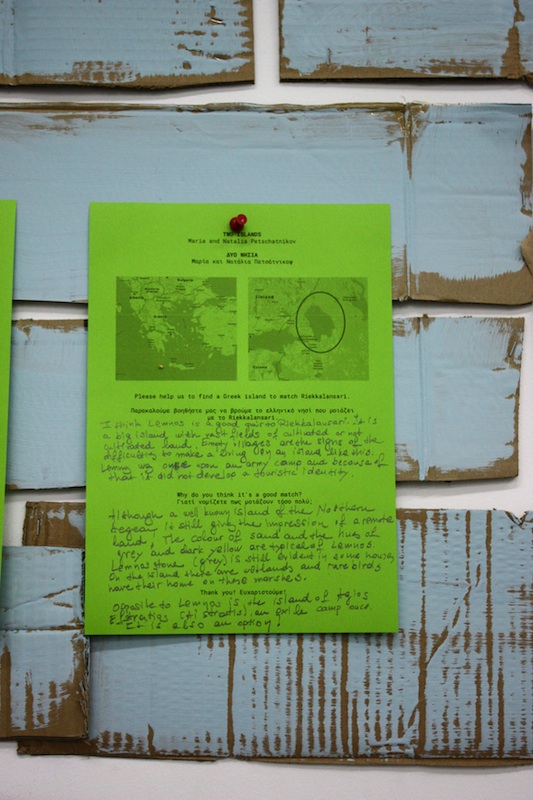 TWO ISLANDS
Maria and Natalia Petschatnikov
ΔΥΟ ΝΗΣΙΑ
Μαρία και Νατάλια Πετσάτνικοφ
Bulgaria
Albania
Greece
Finland
Estonia
Please help us to find a Greek island to match Riekkalansari.
Παρακαλούμε βοηθήστε μας να βρούμε το ελληνικό νησί που μοιάζει
με το Riekkalansari.
I think Lemnos is a good pair to Riekkalansari. It is
a big island, with vast fields of cultivated or not
cultivated land. Empty villages are the signs of the
difficulty to make a living on an island like this.
Lemnos was once upon an army camp and because of
that it did not develop a touristic identity.
Why do you think it's a good match?
Γιατί νομίζετε πως μοιάζουν τόσο πολύ;
Although a well known island of the Northern
Aegean it still gives the impression of a remote
land. The colour of sand and the hues of
grey and dark yellow are typical of Lemnos.
Lemnos stone (grey) is still evident in some houses.
On the island there are wetlands and rare birds
have their home on these marshes.
Thank you! Ευχαριστούμε!
Opposite to Lemnos is the island of Agios
Efstratios (Ai Stratis) an exile camp once.
It is also an option!